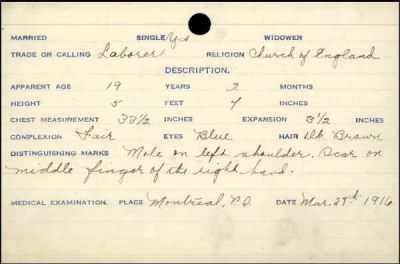 MARRIED SINGLE Yes WIDOWER
TRADE OR CALLING Laborer RELIGION Church of England
DESCRIPTION.
APPARENT AGE 19 YEARS 2 MONTHS
HEIGHT 5 FEET 7 INCHES
CHEST MEASUREMENT 33 1/2 INCHES EXPANSION 3 1/2 INCHES
COMPLEXION Fair EYES Blue HAIR Dk Brown
DISTINGUISHING MARKS Mole on left shoulder. Scar on
middle finger of the right hand.
MEDICAL EXAMINATION. PLACE Montreal, P.Q. DATE Mar. 29th 1916